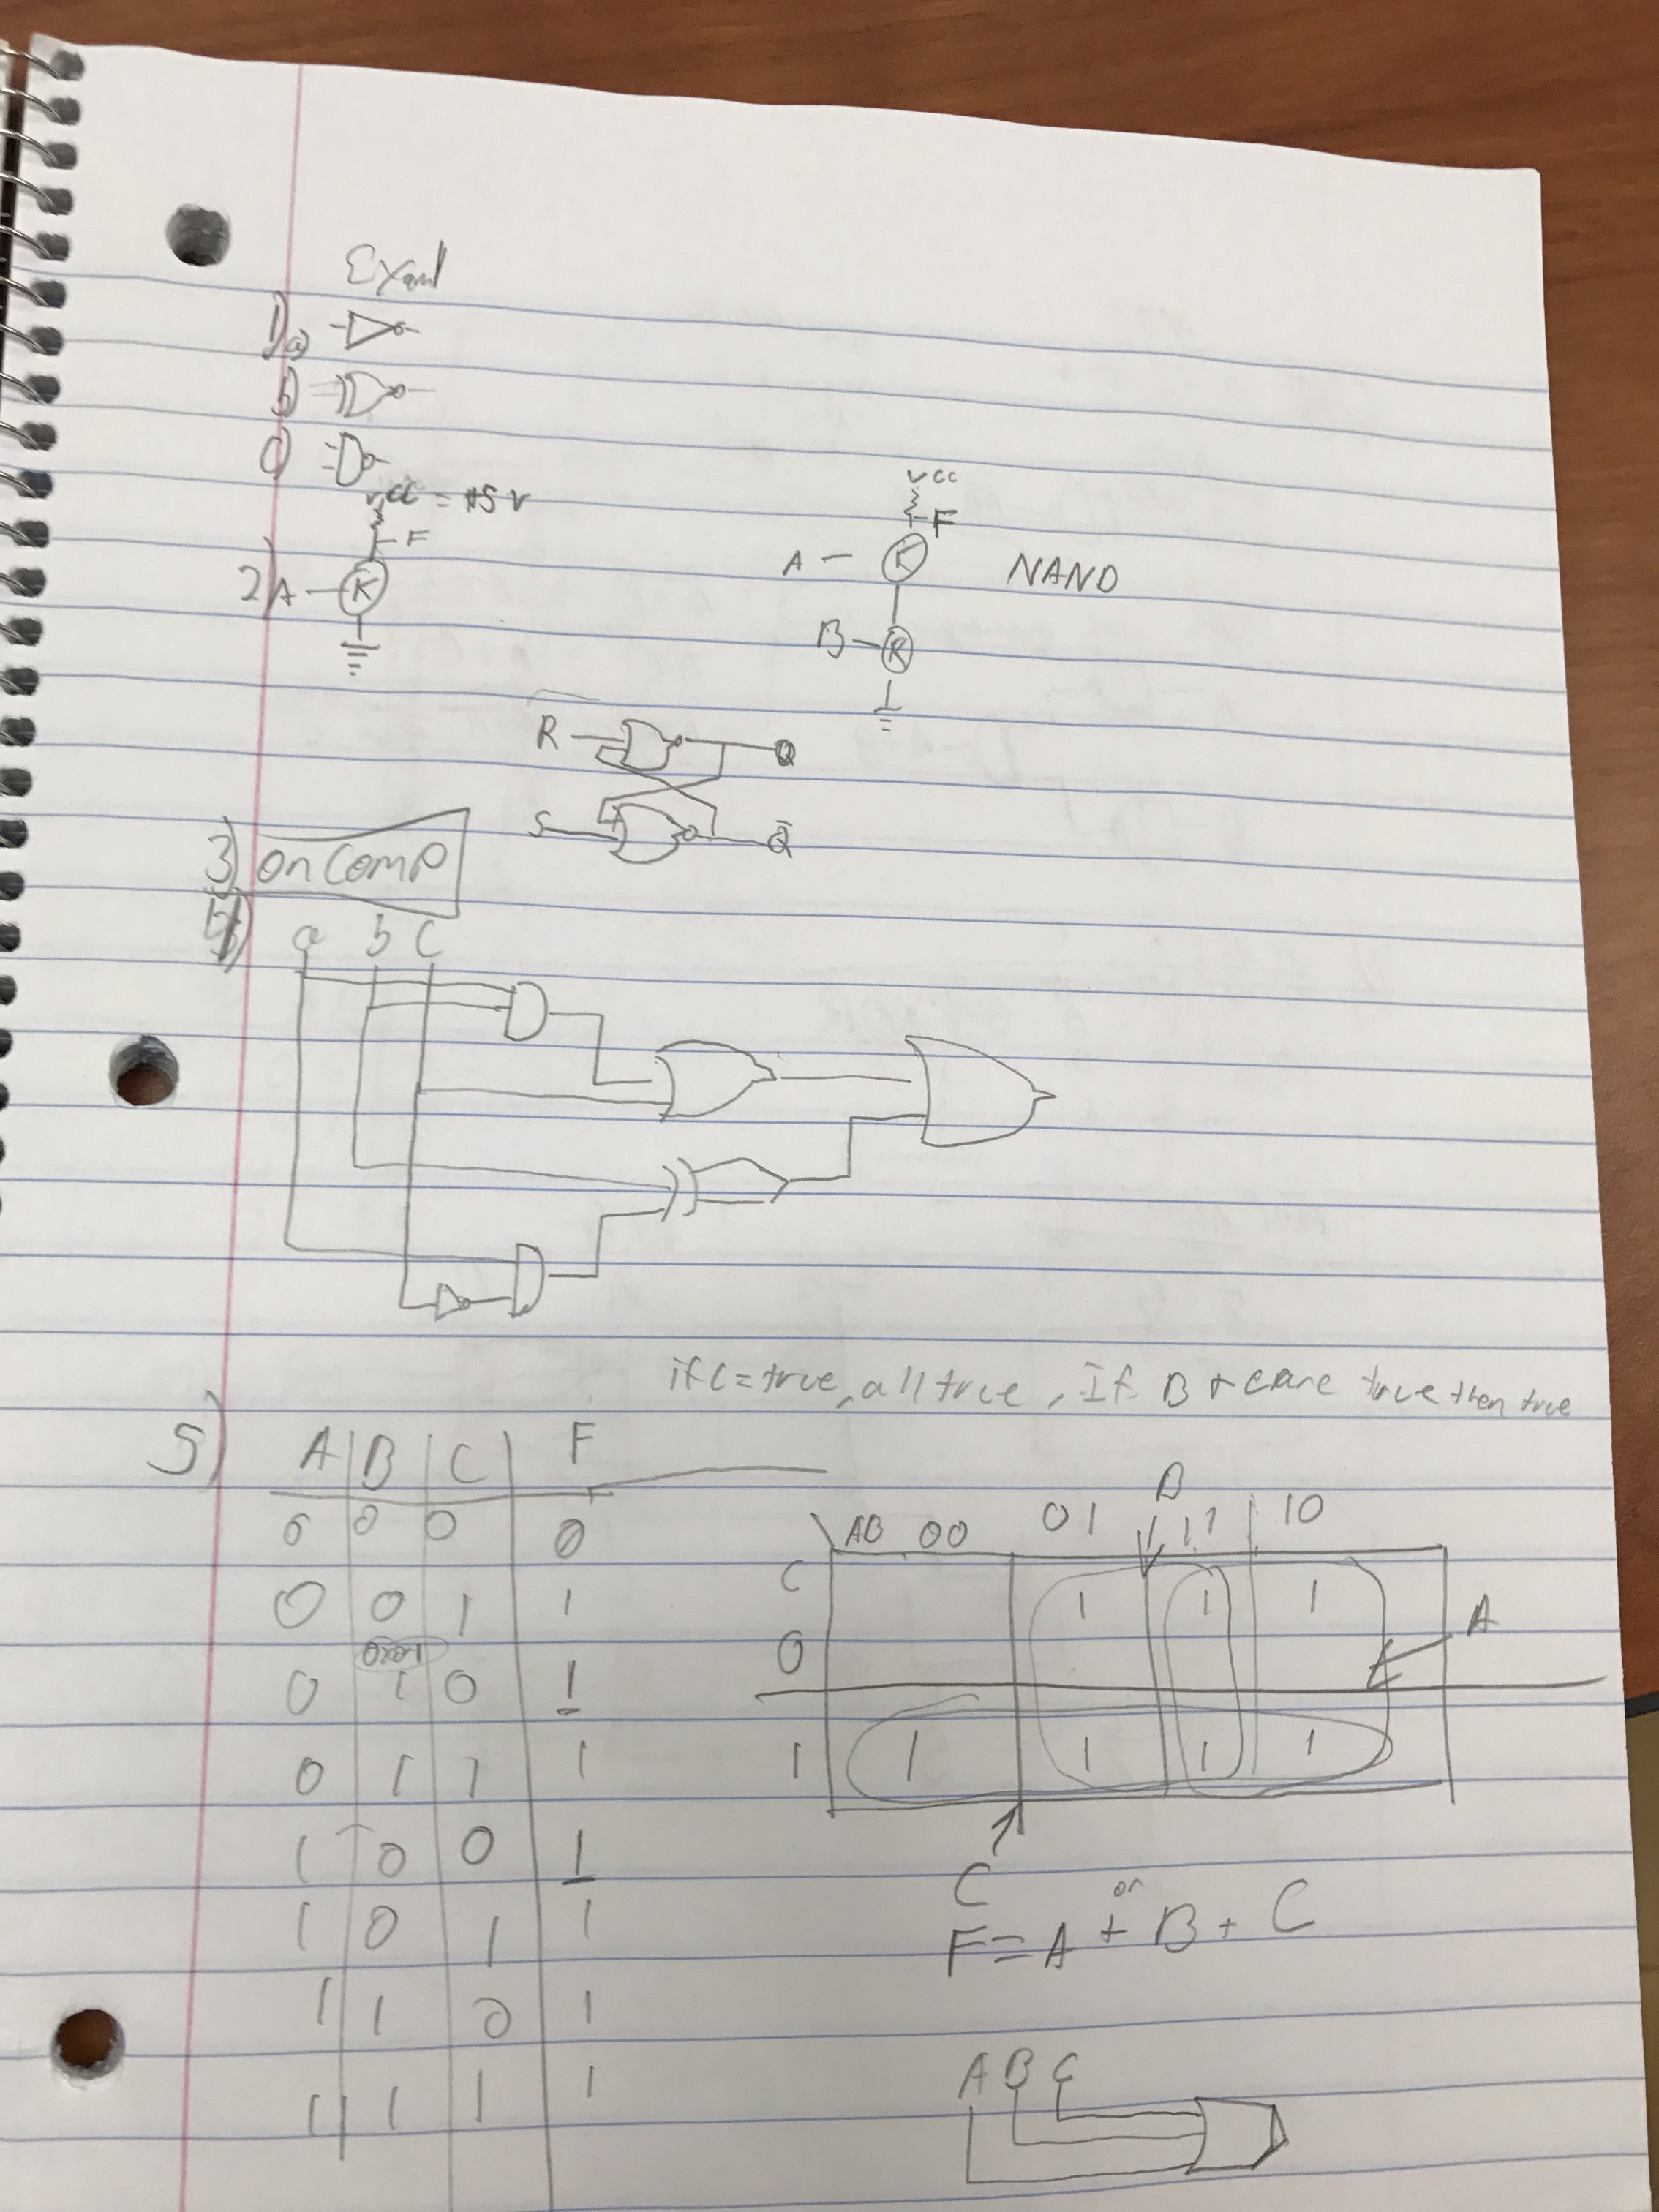 Exam1
1)a)
b)
c)
vcc = +5v
F
2) A
K
vcc
F
A
K
NAND
B
R
R
Q
S
Q̄
3) on comp
4)
a b c
if C = true, all true, If B + C are true then true
5)
A B C F
0 0 0 0
0 0 1 1
0 1 0 1
0 1 1 1
1 0 0 1
1 0 1 1
1 1 0 1
1 1 1 1
B
AB 00 01 11 10
C
0 1 1 1
A
1 1 1 1 1
C
or
F = A + B + C
A B C